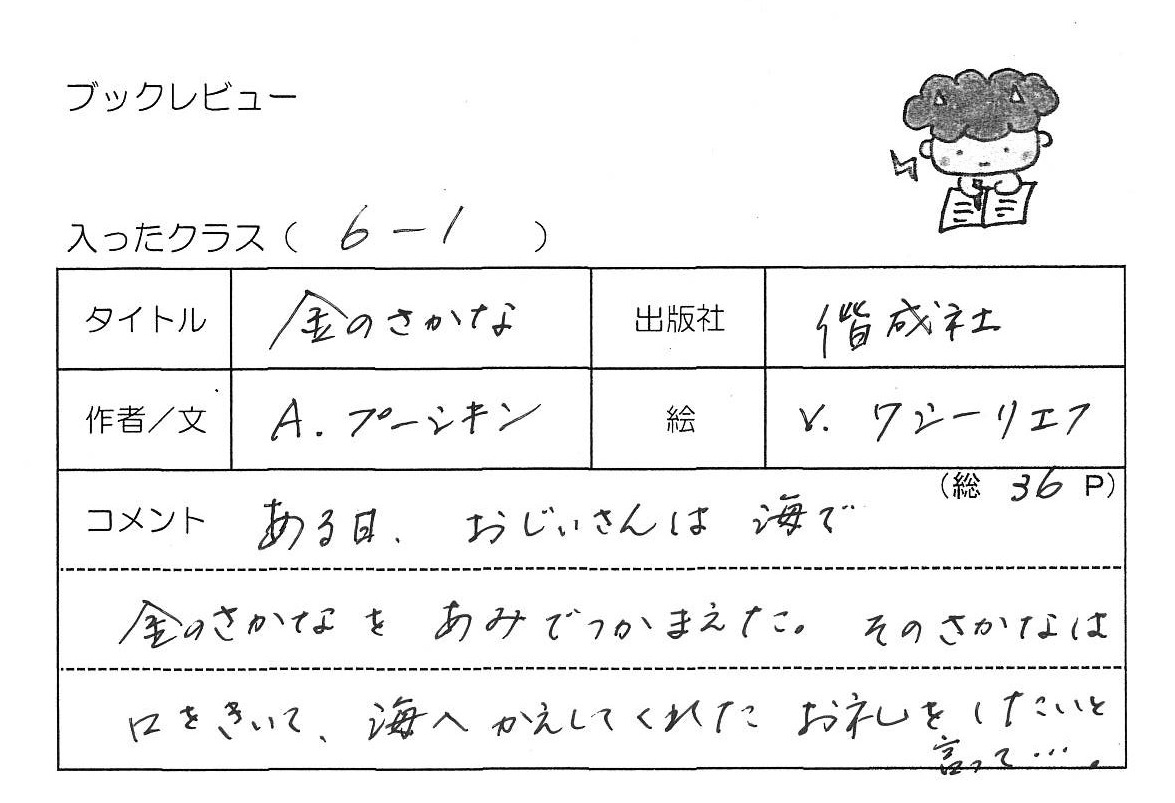 ブックレビュー
入ったクラス（ 6－1 ）
タイトル 金のさかな 出版社 偕成社
作者／文 A. プーシキン 絵 V. ワシーリエフ
（総 36 P）
コメント ある日、おじいさんは 海で
金のさかなを あみでつかまえた。そのさかなは
口をきいて、海へ かえしてくれた お礼をしたいと
言って…。